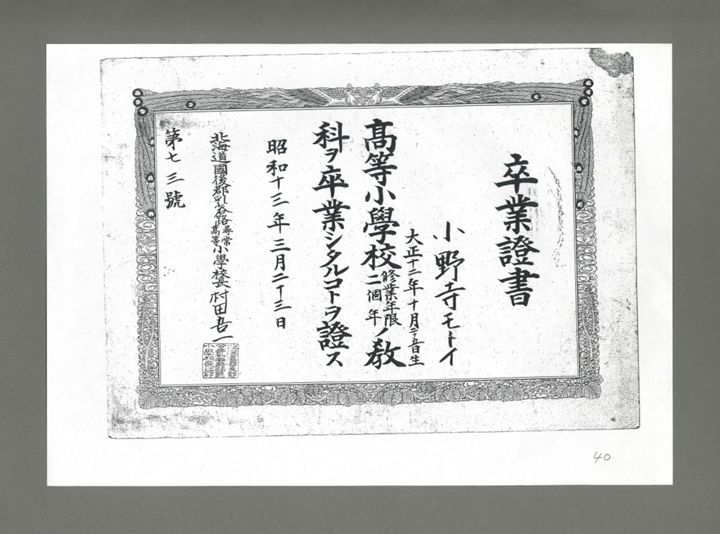 卒業證書
小野寺モトイ
大正十二年十月 日生
高等小學校修業年限二個年ノ教
科ヲ卒業シタルコトヲ證ス
昭和十三年三月二十三日
北海道國後郡乳呑路尋常高等小學校長村田吾一
第七三號
40